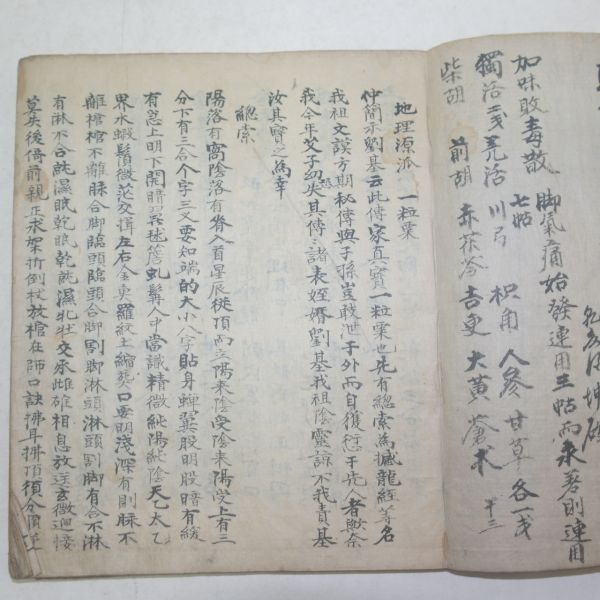 加味敗毒散 七帖 脚氣痛始發連用三帖而來差則連用
獨活 羌活 川芎 枳角 人參 甘草 各一戔
柴胡 前胡 赤茯苓 吉更 大黃 蒼朮
地理源派 一粒粟
仲簡示劉基云此傳家直寶一粒粟也先有總索為撼龍經等名
我祖文誤方期秘傳與子孫豈敢泄于外而自獲愆于先人者歟奈
我今年艾子幼失其傳諸表姪婿劉基我祖陰靈諒不我責基
汝其寶之為幸
總索
陽落有窩陰落有脊入首星辰從頂而立陽來陰受陰來陽受上有三
分下有三合个字三叉要知端的大小八字貼身蟬翼股明股暗有緩
有急上明下開暗异毬簷虬髯人中當識精微純陽純陰天乙太乙
界水蝦鬚微茫交揖左右金魚羅紋土縮葬口要明淺深有則脉不
離棺棺不離脉合脚臨頭臨頭合脚割脚淋頭淋頭割脚有合不淋
有淋不合就濕眠乾眠乾就濕牝牡交承雌雄相息放送玄微迎接
莫失後倚前親正求架折倒杖放棺在師口訣拂耳拂頂須分